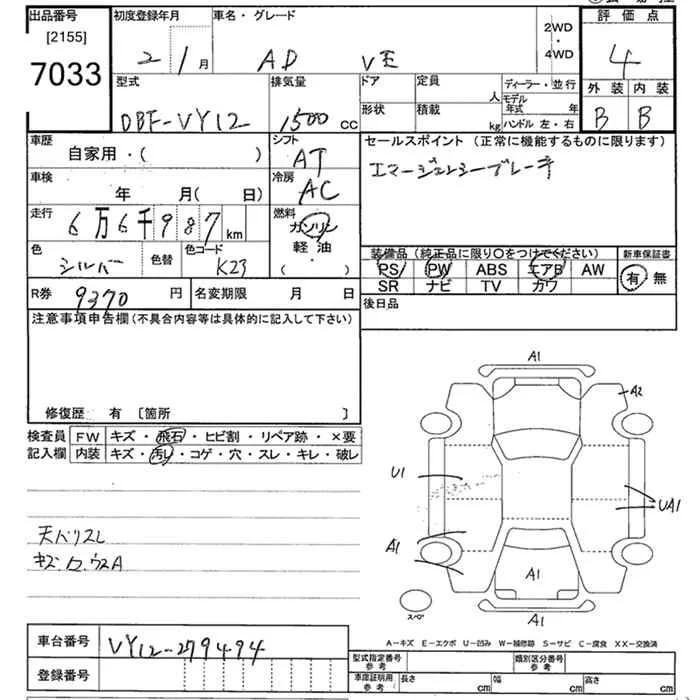 出品番号 初度登録年月 車名・グレード 評価点
[2155]
7033
2 / 1 月 AD VE 2WD・4WD 4
型式 排気量 ドア 定員 人 ディーラー・並行 外装 内装
DBF-VY12 1500 CC 形状 積載 kg モデル年式 年 ハンドル 左・右 B B
車歴 シフト セールスポイント (正常に機能するものに限ります)
自家用・( ) AT エマージェンシーブレーキ
車検 冷房
年 月(日) AC
走行 燃料
6万6千987 km ガソリン
軽油
( )
色 色替 色コード 装備品 (純正品に限り○をつけてください) 新車保証書
シルバー K23 PS PW ABS エアB AW 有 無
SR ナビ TV カワ
R券 9370 円 名変期限 月 日 後日品
注意事項申告欄 (不具合内容等は具体的に記入して下さい)
修復歴 有 [箇所 ]
検査員 FW キズ・飛石・ヒビ割・リペア跡・×要
記入欄 内装 キズ・汚レ・コゲ・穴・スレ・キレ・破レ
A1
A2
U1
UA1
A1
A1
A1
スペア
A-キズ E-エクボ U-凹み W-補修跡 S-サビ C-腐食 XX-交換済
車台番号 VY12-279494
登録番号
型式指定番号 参考 類別区分番号 参考
車庫証明用 参考 長さ cm 幅 cm 高さ cm